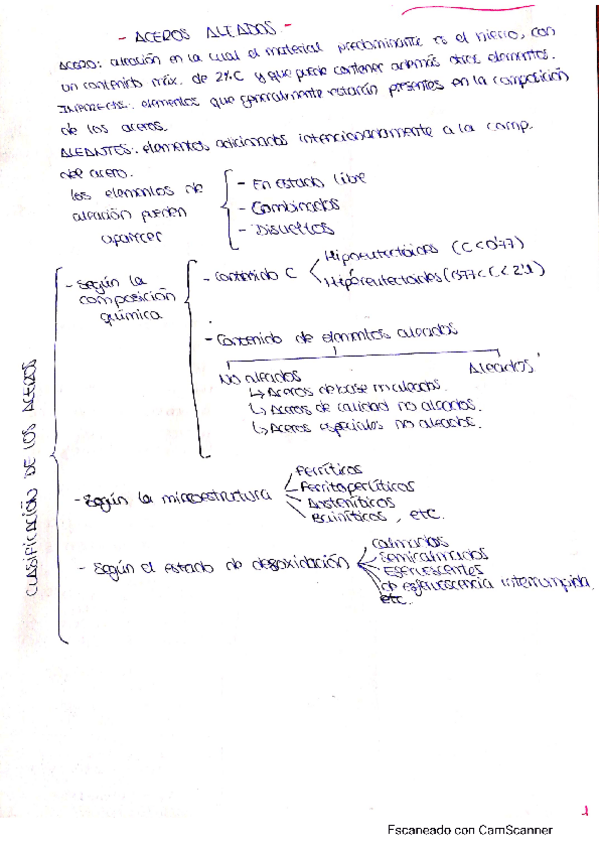 - ACEROS ALEADOS -
ACERO: aleación en la cual el material predominante es el hierro, con
un contenido máx. de 2%C y que puede contener además otros elementos.
elementos que generalmente estarán presentes en la composición
de los aceros.
ALEANTES: elementos adicionados intencionadamente a la comp.
del acero.
los elementos de
aleación pueden
aparecer
- En estado libre
- Combinados
- Disueltos
CLASIFICACIÓN DE LOS ACEROS
- Según la
composición
química
- Contenido C
Hipoeutectoides (C<0'77)
Hipereutectoides (0'77<C<2'1)
- Contenido de elementos aleados
No aleados
↳ Aceros de base no aleados.
↳ Aceros de calidad no aleados.
↳ Aceros especiales no aleados.
Aleados
- Según la microestructura
Ferríticos
Ferritoperlíticos
Austeníticos
Bainíticos, etc.
- Según el estado de desoxidación
Calmados
Semicalmados
Efervescentes
de efervescencia interrumpida,
etc.
1
Escaneado con CamScanner